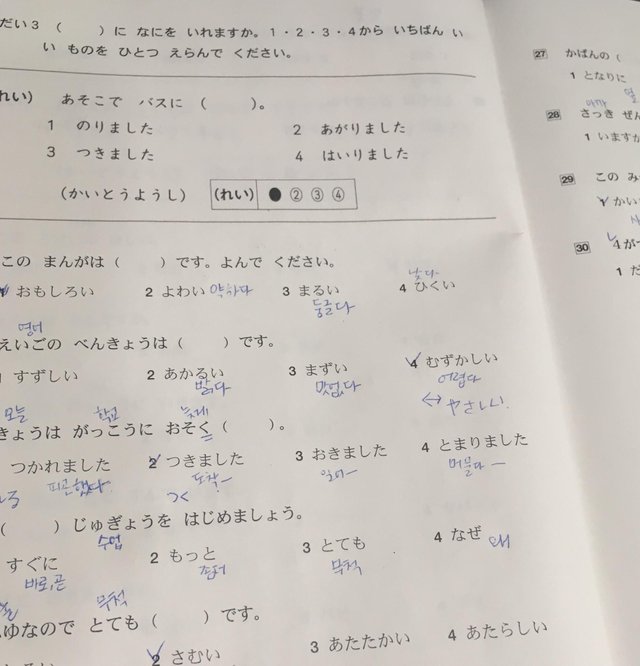 だい3 （　　）に なにを いれますか。1・2・3・4から いちばん い
い ものを ひとつ えらんで ください。
れい） あそこで バスに （　　）。
1 のりました 2 あがりました
3 つきました 4 はいりました
（かいとうようし） （れい） ● ② ③ ④
この まんがは（　　）です。よんで ください。
낮다
おもしろい 2 よわい 약하다 3 まるい 4 ひくい
둥글다
영어
えいごの べんきょうは（　　）です。
1 すずしい 2 あかるい 3 まずい 4 むずかしい
밝다 맛없다 어렵다
↔ やさしい
오늘 학교 늦게
きょうは がっこうに おそく（　　）。
つかれました 2 つきました 3 おきました 4 とまりました
피곤했다 도착ー 일어ー 머물다ー
つく
（　　）じゅぎょうを はじめましょう。
수업
すぐに 2 もっと 3 とても 4 なぜ 왜
바로,곧 좀더 무척
무척
ふゆなので とても（　　）です。
2 さむい 3 あたたかい 4 あたらしい
27 かばんの（
1 となりに
옆
아까
28 さっき ぜん
1 いますか
29 この み
1 かい
30 4が
1 だ